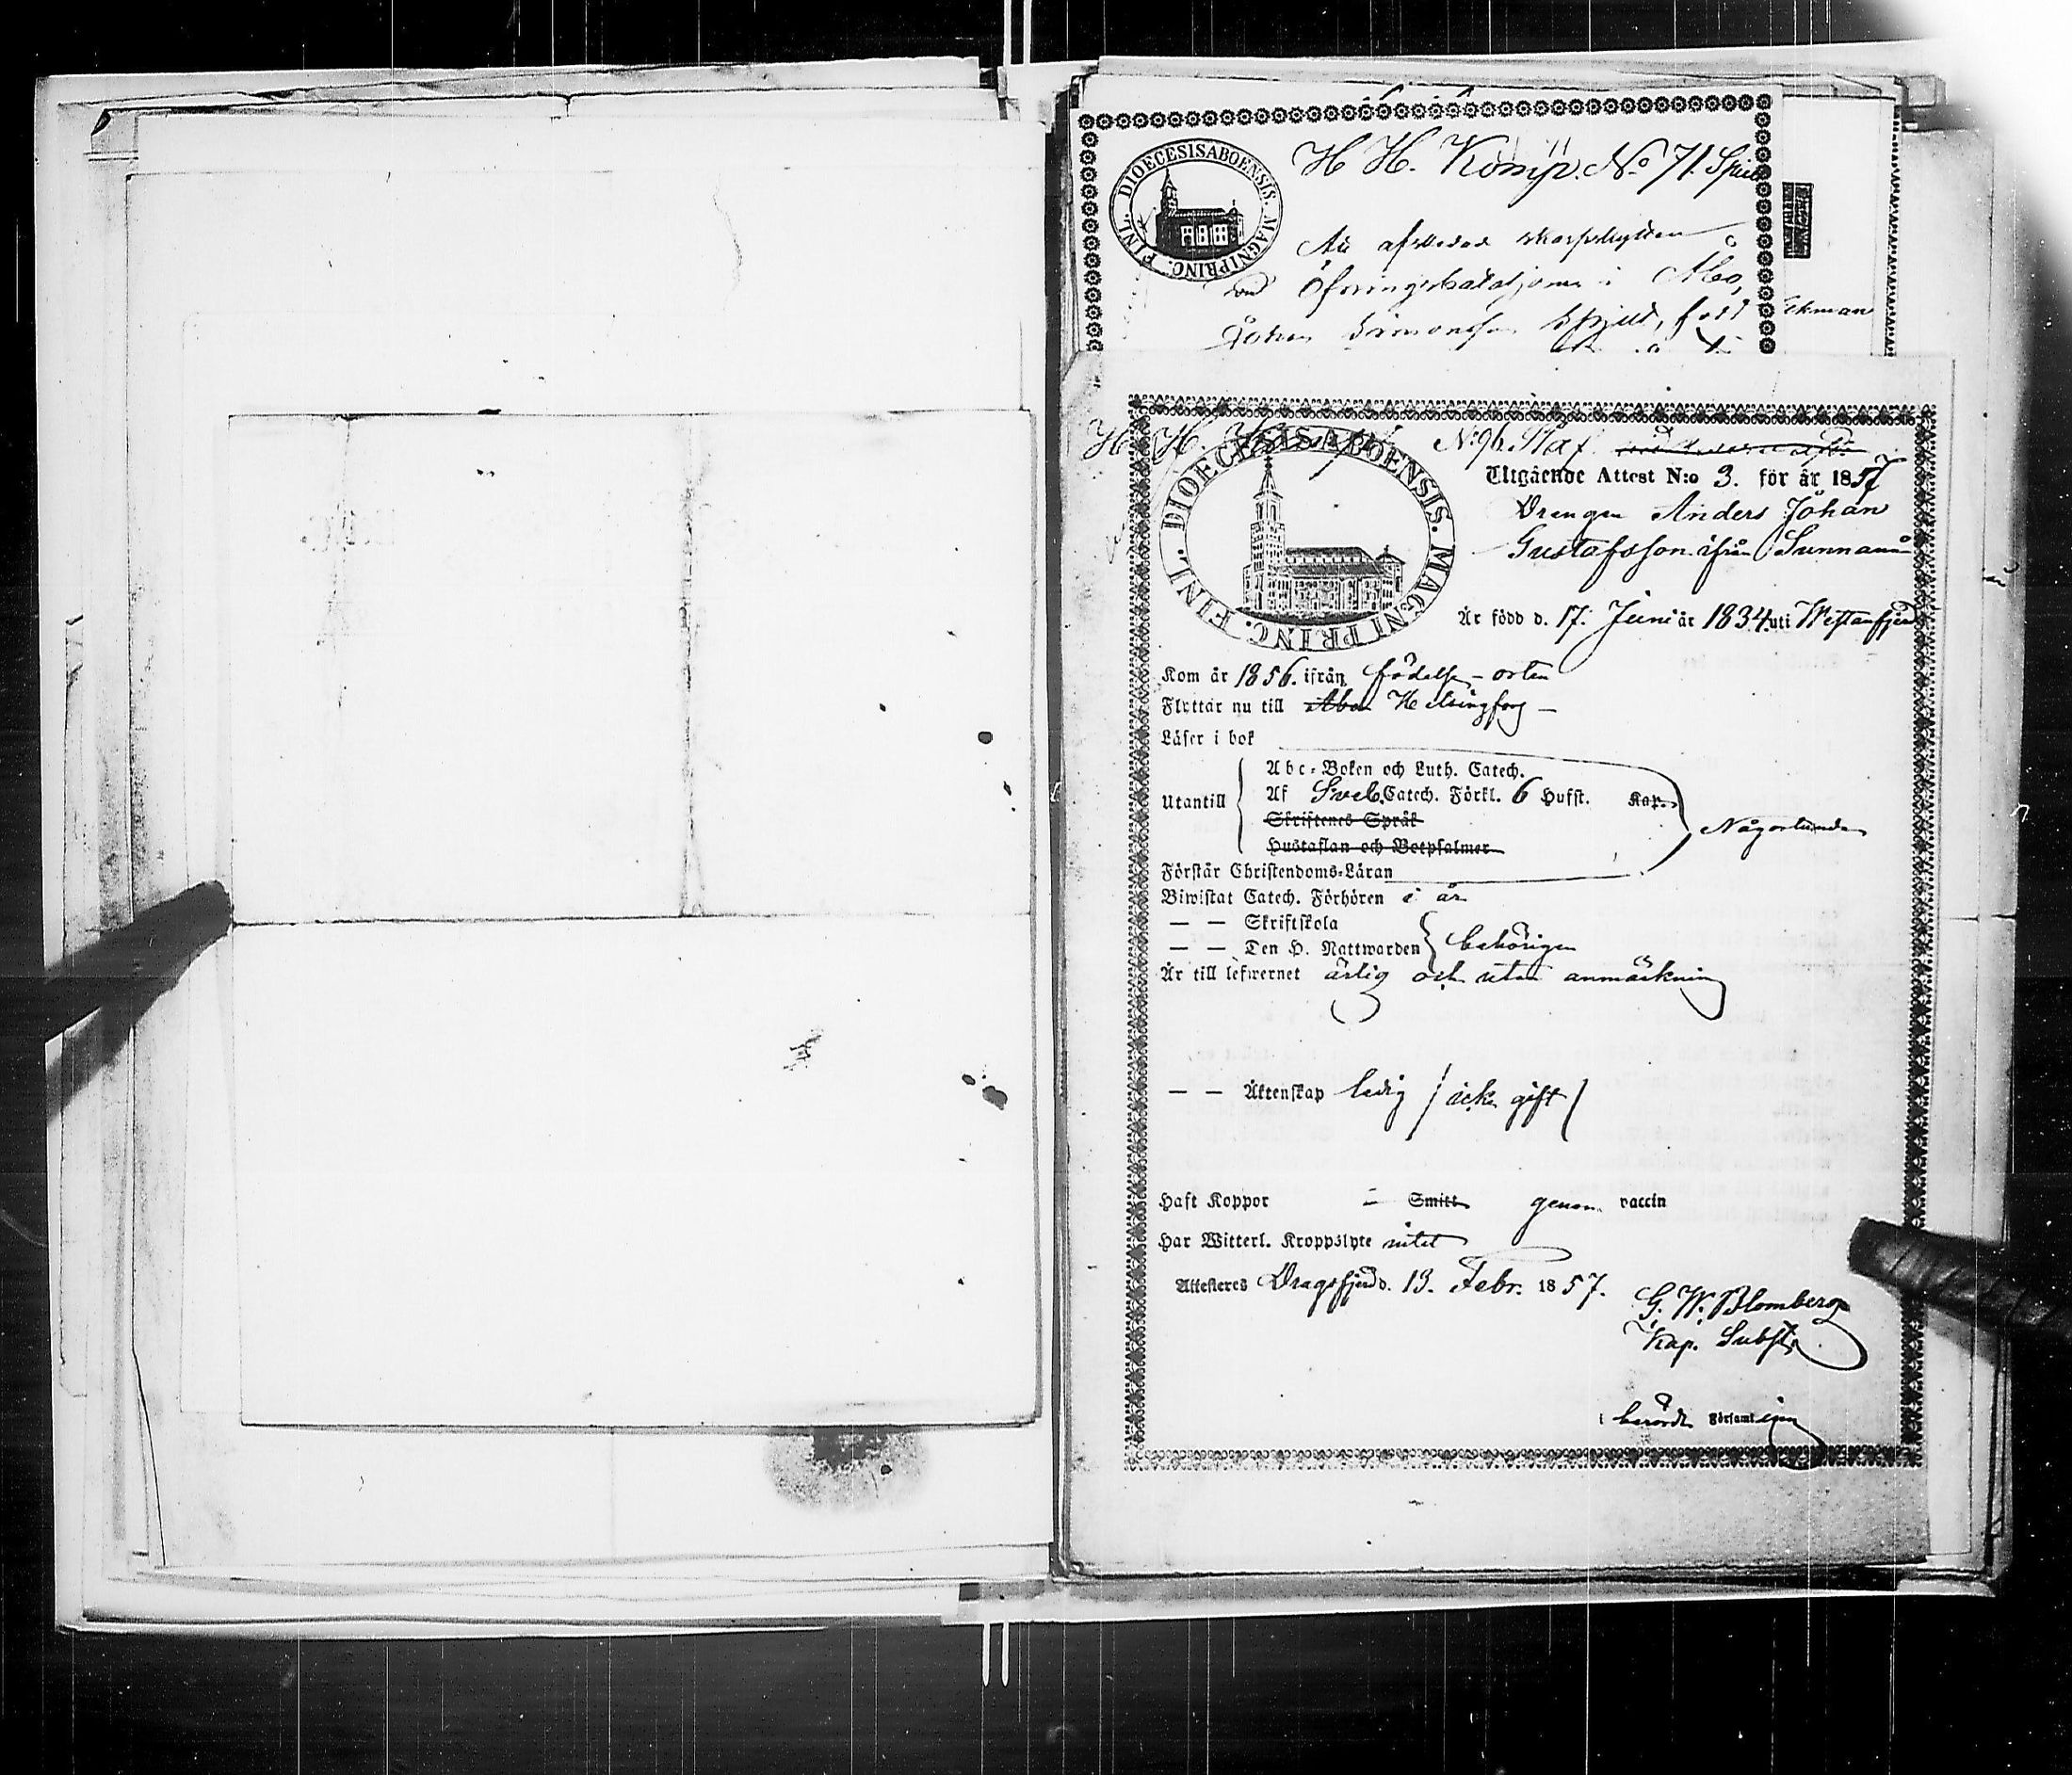 H H. Komp. No 71. Spield
DIOECESIS ABOENSIS. MAGNI PRINC. FINL.
Att afskedade skarpskytten
vid Öfningsbataljonen i Åbo,
Johan Simonsson Spjeld, född
Ekman
H. H. Komp. N:o 96. Staf
DIOECESIS ABOENSIS. MAGNI PRINC. FINL.
Utgående Attest N:o 3. för år 1857
Drengen Anders Johan
Gustafsson ifrån Sunnanå
Är född d. 17. Juni år 1834 uti Westanfjerd
Kom år 1856. ifrån födelse-orten
Flyttar nu till Åbo Helsingfors
Läser i bok
Abc-Boken och Luth. Catech.
Utantill Af Sveb. Catech. Förkl. 6 Hufst. Kap.
Skriftenes Språk
Någorlunda
Hustaflan och Botpsalmer
Förstår Christendoms-Läran
Biwistat Catech. Förhören i år
— — Skriftskola
— — Den H. Nattwarden behörigen
Är till lefwernet ärlig och utan anmärkning
— — Äktenskap ledig / icke gift /
Haft Koppor — Smitt genom vaccin
Har Witterl. Kroppslyte intet
Attesteres Dragsfjerd d. 13. Febr. 1857.
G. W. Blomberg
Kap. Subst.
i berörde Församlingen